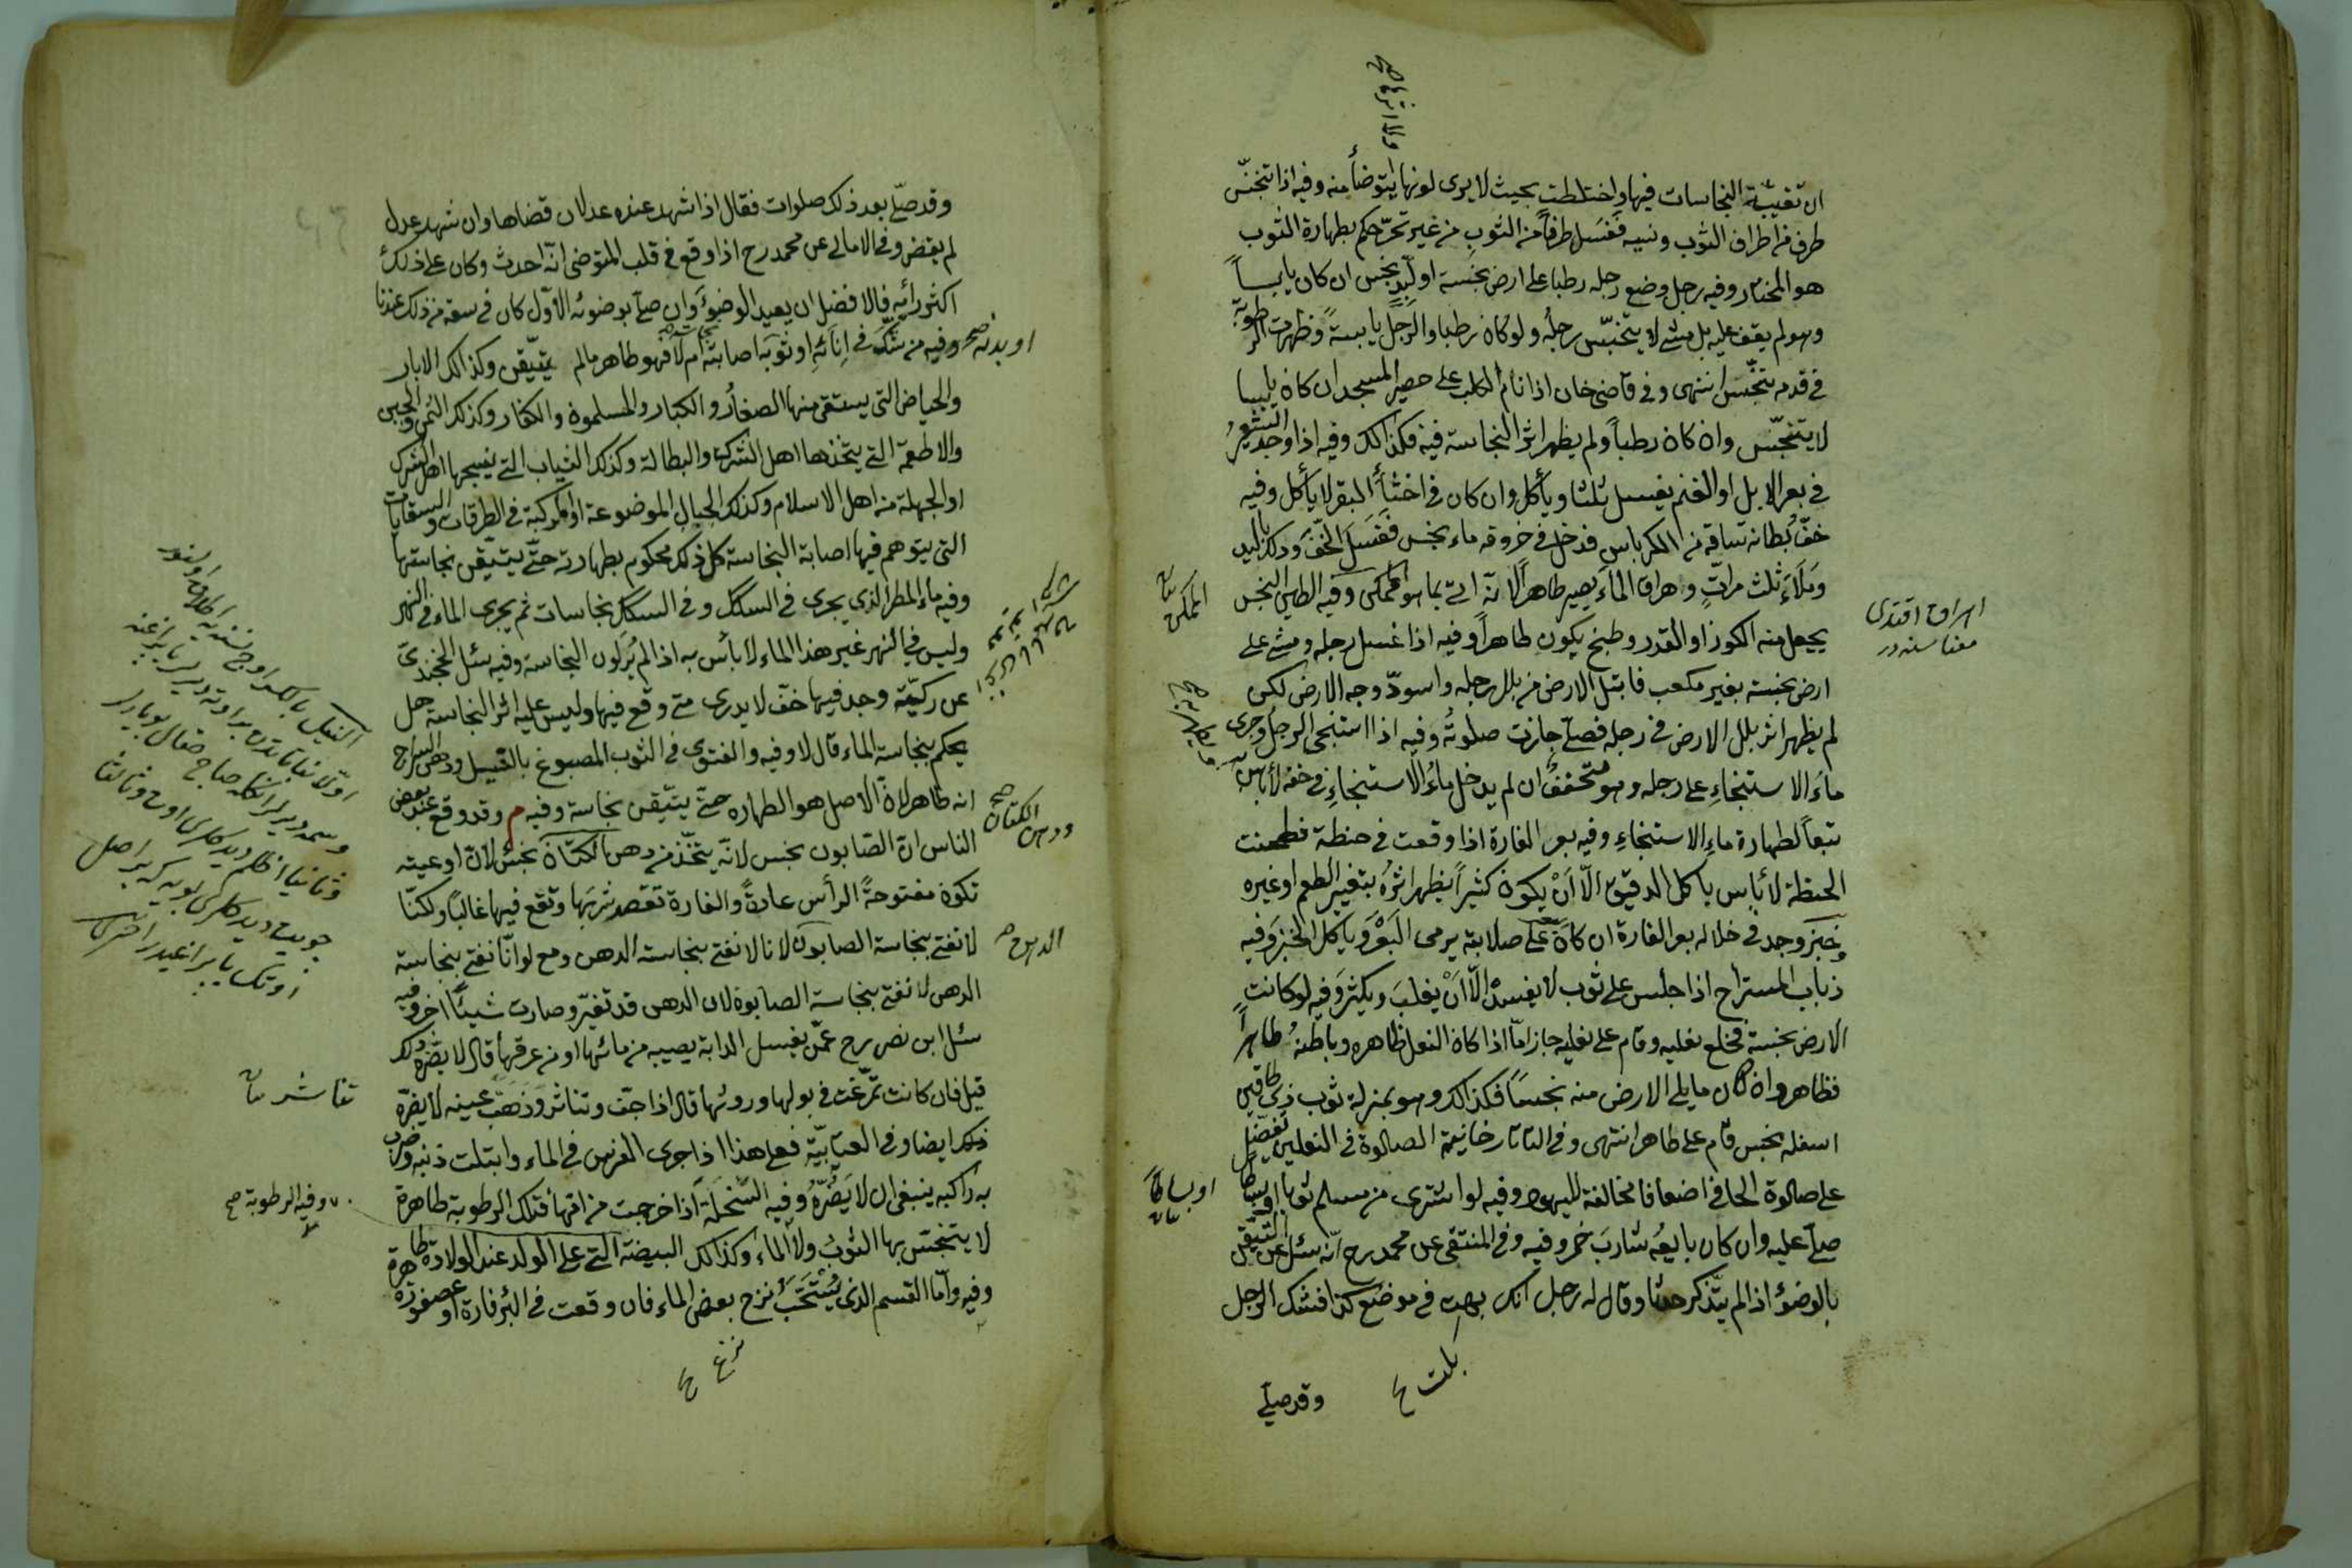 ان تغيبة النجاسات فيها واختلطت بحيث لا يرى لونها يتوضأ منه وفيه اذا تنجّس
طرف من اطراف الثوب ونسيه فغسل طرفاً من الثوب من غير تحرّ حكم بطهارة الثوب
هو المختار وفيه رجل وضع رجله رطبا على ارض نجسة او لبد نجس ان كان يابساً
وهو لم يقف عليه بل مشى لا يتنجّس رجله ولو كان رطبا والرجل يابسة وظهرت الرطوبة
في قدمه يتنجّس انتهى وفي قاضي خان اذا نام الكلب على حصير المسجد ان كان يابسا
لا يتنجّس وان كان رطباً ولم يظهر اثر النجاسة فيه فكذلك وفيه اذا وجد الشعير
في بعر الابل او الغنم يغسل ثلثا ويأكل وان كان في اخثاء البقر لا يأكل وفيه
خفّ بطانة ساقه من الكرباس فدخل في خروقه ماء نجس فغسل الخفّ ودلك باليد
وملاء ثلث مراتٍ واهراق الماء يصير طاهراً لانّه اتى بما هو الممكن وفيه الطين النجس
يجعل منه الكوز او القدر وطبخ يكون طاهراً وفيه اذا غسل رجله ومشى على
ارض نجسة بغير مكعب فابتل الارض من بلل رجله واسودّ وجه الارض لكن
لم يظهر اثر بلل الارض في رجله فصلّى جازت صلوته وفيه اذا استنجى الرجل وجرى
ماء الاستنجاء على رجله وهو متخفف ان لم يدخل ماء الاستنجاء في خفه لا بأس به
تبعاً لطهارة ماء الاستنجاء وفيه بعر الفارة اذا وقعت في حنطة فطحنت
الحنطة لا بأس باكل الدقيق الّا أن يكون كثيراً يظهر اثره بتغير الطعم او غيره
وخبز وجد في خلاله بعر الفارة ان كان على صلابته يرمى البعر ويأكل الخبز وفيه
ذباب المستراح اذا جلس على ثوب لا يفسده الّا أن يغلب ويكثر وفيه لو كانت
الارض نجسة فخلع نعليه وقام على نعليه جاز امّا اذا كان النعل ظاهره وباطنه طاهراً
فظاهر وان كان ما يلي الارض منه نجسا فكذلك وهو بمنزلة ثوب ذي طاقين
اسفله نجس قام على طاهر انتهى وفي التاتارخانية الصلوة في النعلين تفضّل
على صلوة الحافي اضعافا مخالفة لليهود وفيه لو اشترى من مسلم ثوبا او بساطا
صلّى عليه وان كان بايعه شارب خمر وفيه وفي المنتقى عن محمد رح انّه سئل عن التيقن
بالوضوء اذا لم يتذكر حدثا وقال له رجل انك بلت في موضع كذا فشك الرجل
وقد صلّى
بلت
الممكن
اهراق
او بساطاً
وقد صلّى بعد ذلك صلوات فقال اذا شهد عنده عدلان قضاها وان شهد عدل
لم يقض وفي الامالي عن محمد رح اذا وقع في قلب المتوضي انّه احدث وكان على ذلك
اكثر رأيه فالافضل ان يعيد الوضوء وان صلّى بوضوئه الاوّل كان في سعة من ذلك عندنا
وفيه من شكّ في انائه او ثوبه اصابته ام لا فهو طاهر ما لم يتيقّن وكذلك الابار
والحياض التي يستقى منها الصغار والكبار والمسلمون والكفار وكذلك السمن والجبن
والاطعمة التي يتخذها اهل الشرك والبطالة وكذلك الثياب التي ينسجها اهل الشرك
او الجهلة من اهل الاسلام وكذلك الجباب الموضوعة او المركبة في الطرقات والسقايات
التي يتوهم فيها اصابة النجاسة كل ذلك محكوم بطهارته حتى يتيقن نجاستها
وفيه ماء المطر الذي يجري في السكك وفي السكك نجاسات ثم يجري الماء في النهر
وليس في النهر غير هذا الماء لا بأس به اذا لم ير لون النجاسة وفيه سئل الخجندي
عن ركيّة وجد فيها خفّ لا يدرى متى وقع فيها وليس عليه اثر النجاسة هل
يحكم بنجاسة الماء قال لا وفيه والفتوى في الثوب المصبوغ بالنيل ودهن السراج
انه طاهر لان الاصل هو الطهارة حتى يتيقن نجاسة وفيه م وقد وقع عند بعض
الناس ان الصابون نجس لانّه يتّخذ من دهن الكتان نجس لان اوعيته
تكون مفتوحة الرأس عادةً والفارة تقصد شربها وتقع فيها غالباً ولكنّا
لا نفتي بنجاسة الصابون لانا لا نفتي بنجاسة الدهن ومع لو انّا نفتي بنجاسة
الدهن لا نفتي بنجاسة الصابون لان الدهن قد تغيّر وصارت شيئاً اخر وفيه
سئل ابن نصر رح عمّن يغسل الدابة يصيبه من مائها او من عرقها قال لا يضرّه ذلك
قيل فان كانت تمرّغت في بولها وروثها قال اذا جفّ وتناثر وذهب عينه لا يضرّه
ذلك ايضا وفي العتابيّة فعلى هذا اذا جرى الفرس في الماء وابتلت ذنبه وضرب
به راكبه ينبغي ان لا يضرّه وفيه السخلة اذا خرجت من امّها فتلك الرطوبة طاهرة
لا يتنجّس بها الثوب ولا الماء وكذلك البيضة التي على الولد عند الولادة طاهرة
وفيه وامّا القسم الذي يستحب نزح بعض الماء فان وقعت في البئر فارة او عصفورة
او بدنه صح
ودهن الكتان صح
الدهن
وفيه الرطوبة صح